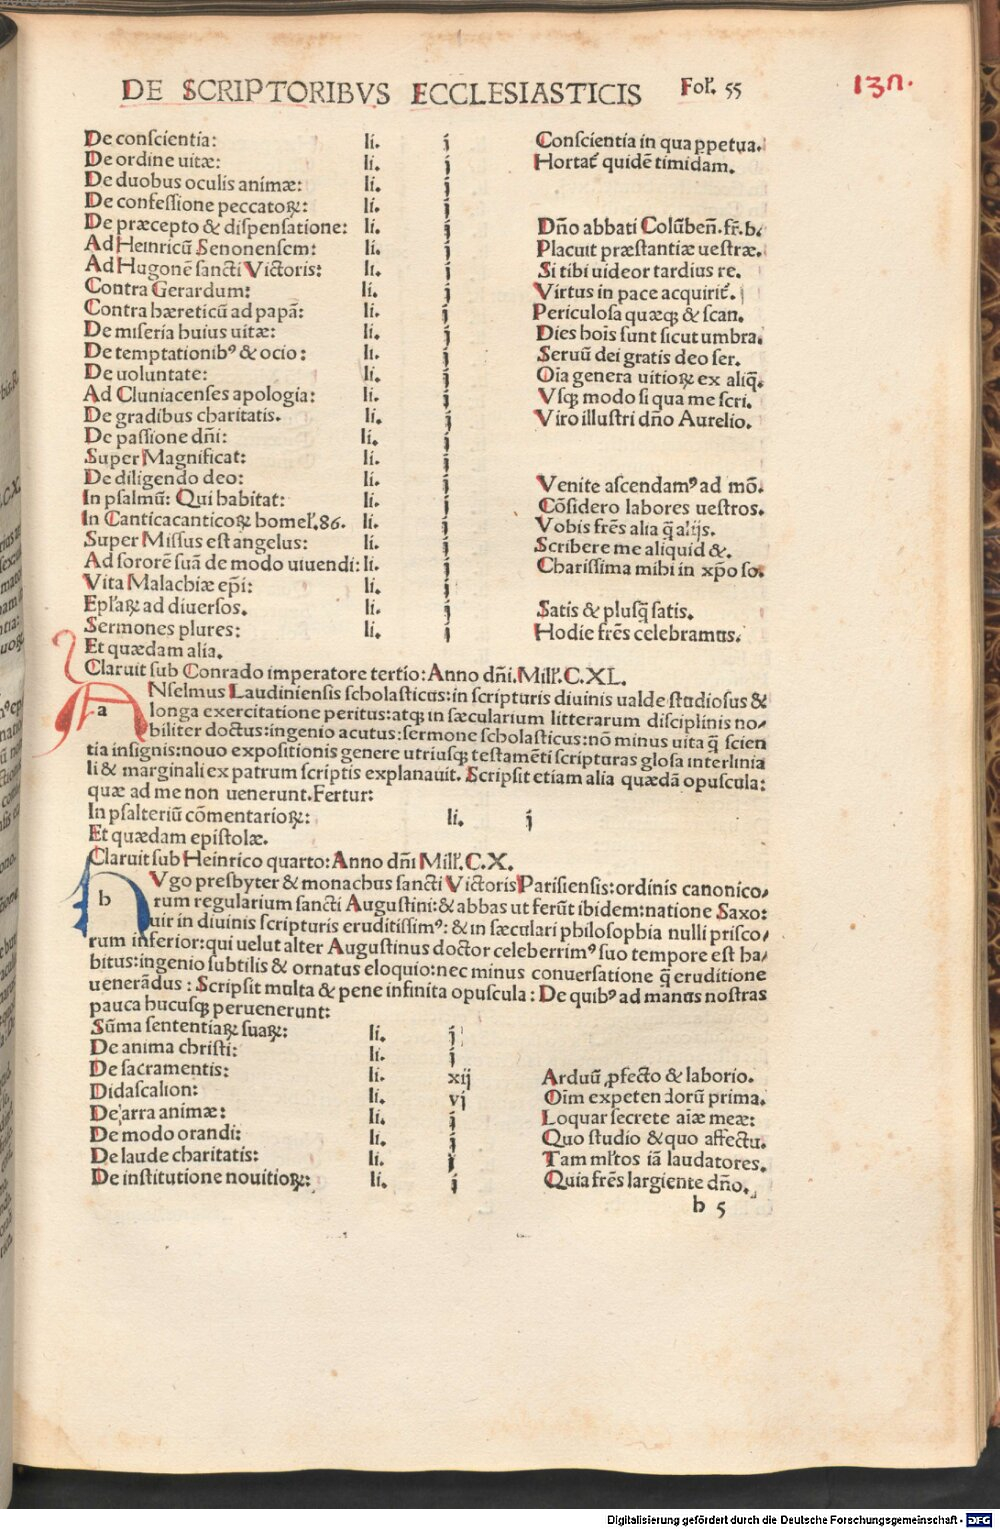 DE SCRIPTORIBVS ECCLESIASTICIS Fol'. 55 137.
De conscientia: li. j Conscientia in qua ꝑpetua.
De ordine uitæ: li. j Hortat᷑ quidē timidam.
De duobus oculis animæ: li. j
De confessione peccatoꝝ: li. j
De præcepto & dispensatione: li. j Dño abbati Colūbeñ. fr̄. b.
Ad Heinricū Senonensem: li. j Placuit præstantiæ uestræ.
Ad Hugonē sancti Victoris: li. j Si tibi uideor tardius re.
Contra Gerardum: li. j Virtus in pace acquirit᷑.
Contra hæreticū ad papā: li. j Periculosa quæqꝫ & scan.
De miseria huius uitæ: li. j Dies hoīs sunt sicut umbra.
De temptationibꝰ & ocio: li. j Seruū dei gratis deo ser.
De uoluntate: li. j Oīa genera uitioꝝ ex aliq̄.
Ad Cluniacenses apologia: li. j Vsqꝫ modo si qua me scri.
De gradibus charitatis. li. j Viro illustri dño Aurelio.
De passione dñi: li. j
Super Magnificat: li. j
De diligendo deo: li. j Venite ascendamꝰ ad mō.
In psalmū: Qui habitat: li. j Cōsidero labores uestros.
In Canticacanticoꝝ homel'. 86. li. j Vobis frēs alia q̄ alijs.
Super Missus est angelus: li. j Scribere me aliquid &.
Ad sororē suā de modo uiuendi: li. j Charissima mihi in xp̄o so.
Vita Malachiæ ep̄i: li. j
Epl'aꝝ ad diuersos. li. j Satis & plusq̄ satis.
Sermones plures: li. j Hodie frēs celebramus.
Et quædam alia.
Claruit sub Conrado imperatore tertio: Anno dñi. Mill'. C. XL.
a ANselmus Laudiniensis scholasticus: in scripturis diuinis ualde studiosus &
longa exercitatione peritus: atqꝫ in sæcularium litterarum disciplinis no/
biliter doctus: ingenio acutus: sermone scholasticus: nō minus uita q̄ scien
tia insignis: nouo expositionis genere utriusqꝫ testamēti scripturas glosa interlinia
li & marginali ex patrum scriptis explanauit. Scripsit etiam alia quædā opuscula:
quæ ad me non uenerunt. Fertur:
In psalteriū cōmentarioꝝ: li. j
Et quædam epistolæ.
Claruit sub Heinrico quarto: Anno dñi Mill'. C. X.
h HVgo presbyter & monachus sancti Victoris Parisiensis: ordinis canonico/
rum regularium sancti Augustini: & abbas ut ferūt ibidem: natione Saxo:
uir in diuinis scripturis eruditissimꝰ: & in sæculari philosophia nulli prisco/
rum inferior: qui uelut alter Augustinus doctor celeberrimꝰ suo tempore est ha/
bitus: ingenio subtilis & ornatus eloquio: nec minus conuersatione q̄ eruditione
uenerādus: Scripsit multa & pene infinita opuscula: De quibꝰ ad manus nostras
pauca hucusqꝫ peruenerunt:
Sūma sententiaꝝ suaꝝ: li. j
De anima christi: li. j
De sacramentis: li. xij Arduū ꝓfecto & laborio.
Didascalion: li. vj Oīm expetendorū prima.
De arra animæ: li. j Loquar secrete aīæ meæ:
De modo orandi: li. j Quo studio & quo affectu.
De laude charitatis: li. j Tam ml'tos iā laudatores.
De institutione nouitioꝝ: li. j Quia frēs largiente dño.
b 5
Digitalisierung gefördert durch die Deutsche Forschungsgemeinschaft - DFG